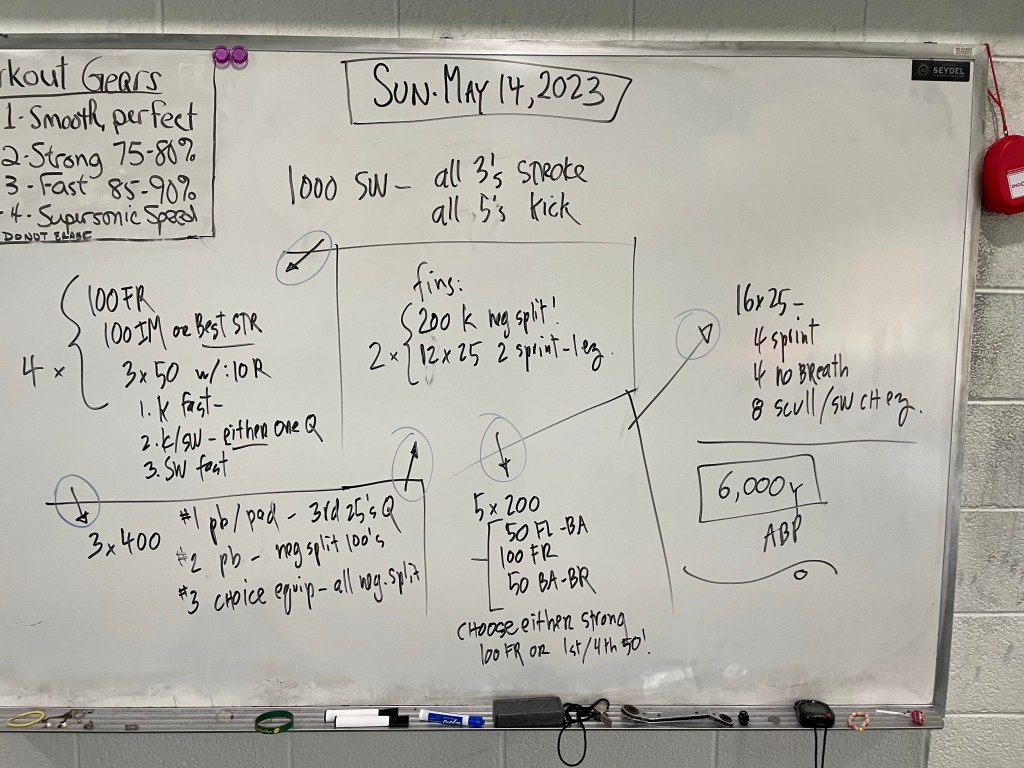 rkout Gears
1-Smooth, perfect
2-Strong 75-80%
3-Fast 85-90%
4-Supersonic Speed
DO NOT BLAME
SEYDEL
SUN. MAY 14, 2023
1000 SW - all 3's STROKE
all 5's Kick
4 x
100 FR
100 IM or Best STR
3 x 50 w/:10R
1. K fast-
2. K/SW - either one Q
3. SW fast
3 x 400
#1 pb/pad - 3rd 25's Q
#2 pb - neg split 100's
#3 CHOICE equip - all neg. split
fins:
2 x
200 K neg split!
12 x 25 2 sprint-1 ez.
5 x 200
50 FL-BA
100 FR
50 BA-BR
CHOOSE either strong
100 FR OR 1st/4th 50!
16 x 25 -
4 sprint
4 no BREATH
8 scull/SW CH ez.
6,000y
ABP